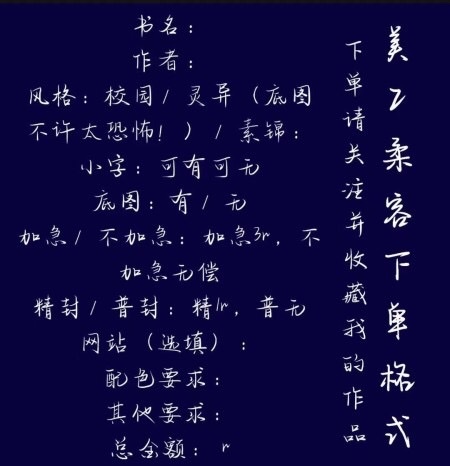 书名：
作者：
风格：校园/灵异（底图
不许太恐怖！）/素锦：
小字：可有可无
底图：有/无
加急/不加急：加急3r，不
加急无偿
精封/普封：精1r，普无
网站（选填）：
配色要求：
其他要求：
总金额： r
下单请关注并收藏我的作品
美工柔客下单格式